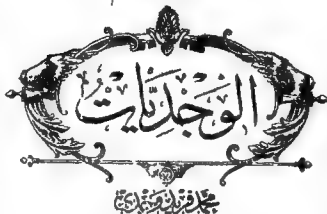 الوَجديَّات
محمد فريد وجدي